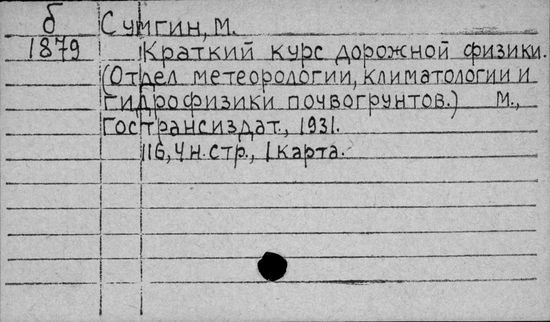 б Сумгин, М.
1879 Краткий курс дорожной физики.
(Отдел метеорологии, климатологии и
гидрофизики почвогрунтов.) М.,
Гострансиздат., 1931.
116, 4 н. стр., 1 карта.